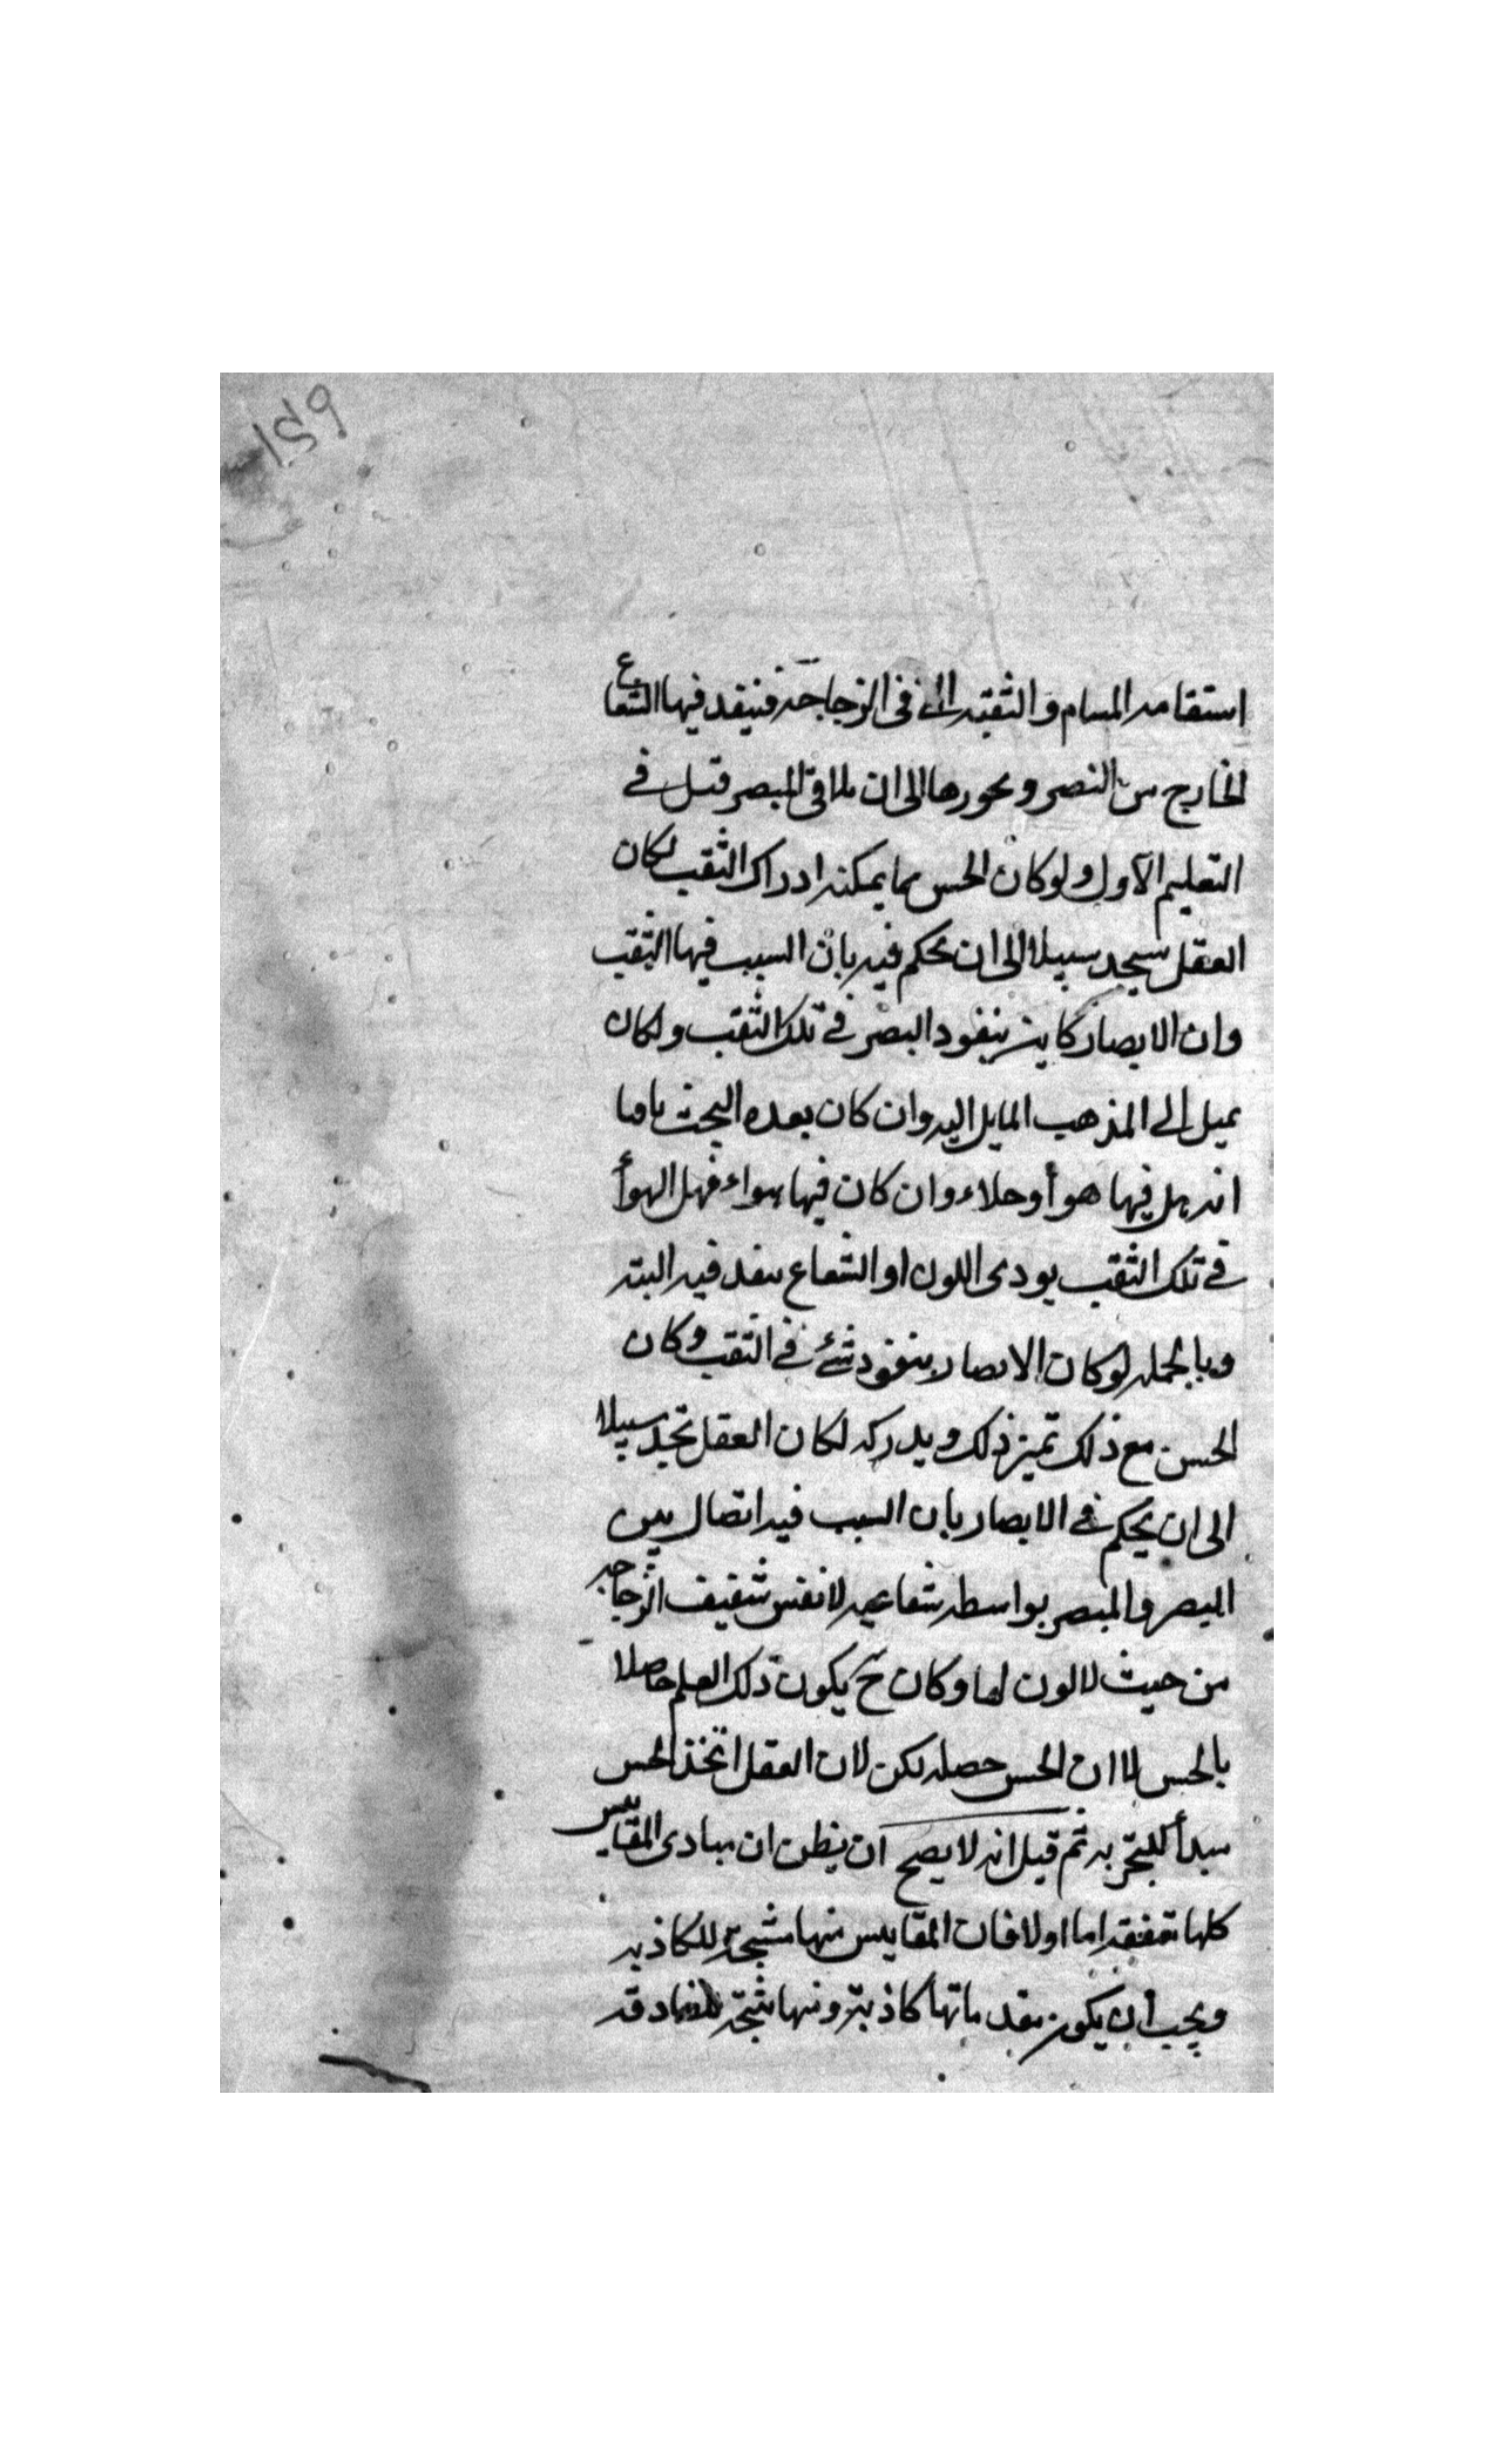 ١٥٩
استقامه المسام والثقبه التى فى الزجاجة فينفد فيها الشعاع
الخارج من البصر ويحورها الى ان يلاقى المبصر قبل فى
التعليم الأول ولو كان الحس مما يمكنه ادراك الثقب لكان
العقل سيجد سبيلا الى ان يحكم فيه بان السبب فيها الثقب
وان الابصار كاين بنفود البصر فى تلك الثقب ولكان
يميل الى المذهب المايل اليه وان كان بعده البحث باقيا
انه هل فيها هوأ او خلاء وان كان فيها هواء فهل الهوأ
فى تلك الثقب يودى اللون او الشعاع ينفد فيه البته
وبالجمله لو كان الابصار بنفود شئ فى الثقب وكان
الحس مع ذلك تميز ذلك ويدركه لكان العقل تجد سبيلا
الى ان يحكم فى الابصار بان السبب فيه اتصال بين
البصر والمبصر بواسطه شعاعيه لا نفس شفيف الزجاجه
من حيث لا لون لها وكان ح يكون ذلك العلم حاصلا
بالحس لا ان الحس حصله لكن لان العقل اتخذ الحس
مبدأ للتجربه ثم قيل انه لا يصح ان يظن ان مبادى المقاييس
كلها متفقه اما اولا فان المقاييس منها منتجة للكاذبه
ويجب ان يكون مقدماتها كاذبة ومنها منتجة للصادقه